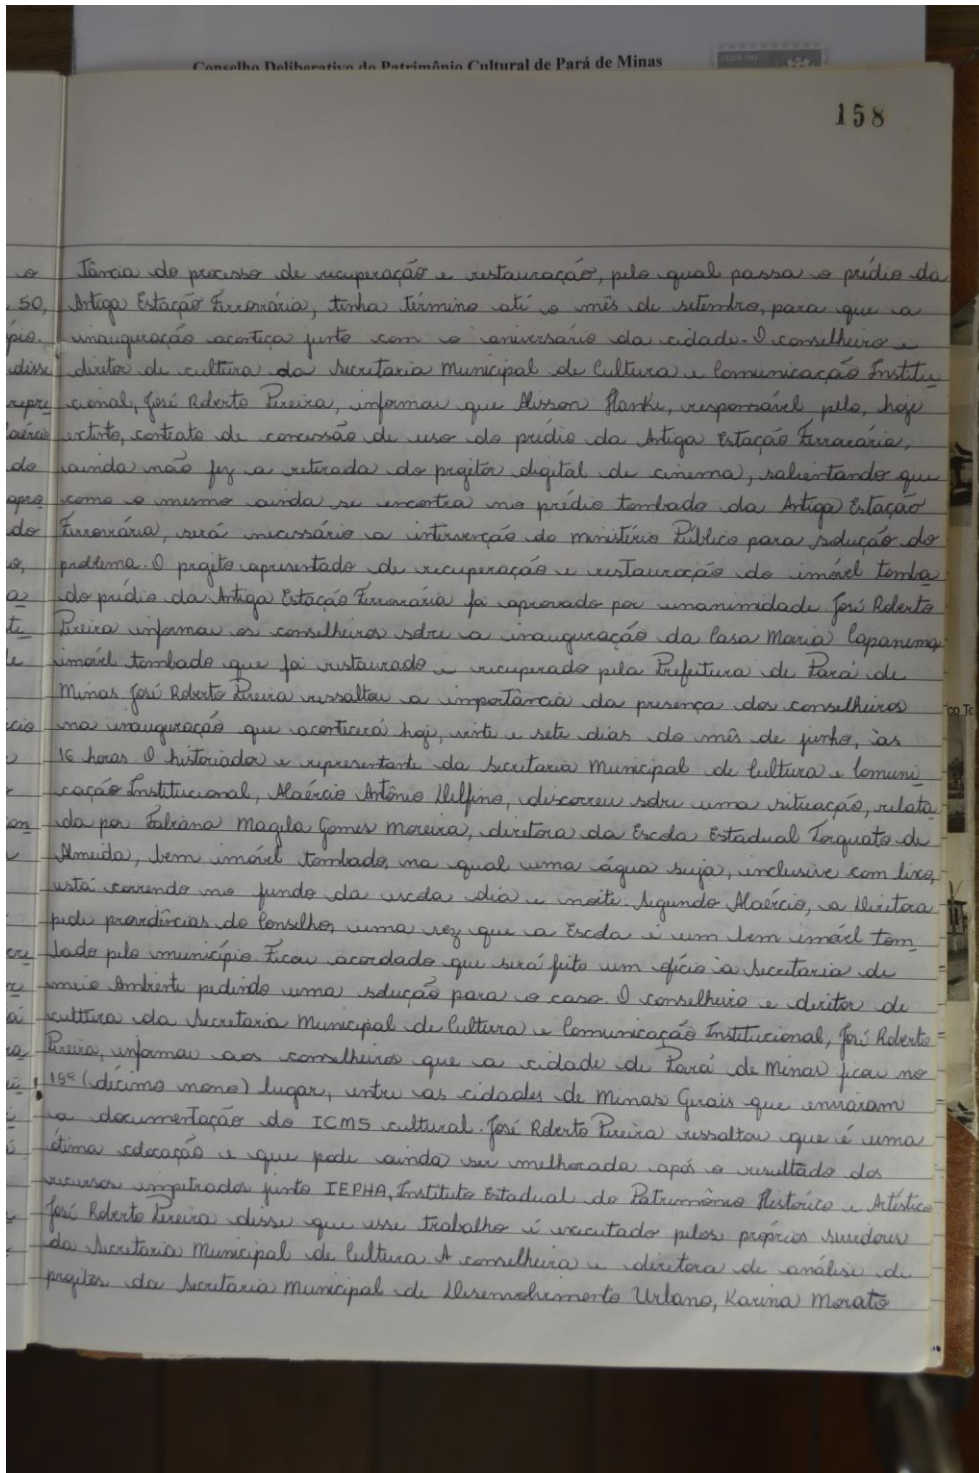 Conselho Deliberativo do Patrimônio Cultural de Pará de Minas
158
tância do processo de recuperação e restauração, pelo qual passa o prédio da
Antiga Estação Ferroviária, tenha término até o mês de setembro, para que a
inauguração aconteça junto com o aniversário da cidade. O conselheiro e
diretor de cultura da Secretaria Municipal de Cultura e Comunicação Institu
cional, José Roberto Pereira, informou que Alisson Hanke, responsável pelo, hoje
extinto, contrato de concessão de uso do prédio da Antiga Estação Ferroviária,
ainda não fez a retirada do projetor digital de cinema, salientando que
como o mesmo ainda se encontra no prédio tombado da Antiga Estação
Ferroviária, será necessário a intervenção do ministério Público para solução do
problema. O projeto apresentado de recuperação e restauração do imóvel tomba
do prédio da Antiga Estação Ferroviária foi aprovado por unanimidade. José Roberto
Pereira informou os conselheiros sobre a inauguração da Casa Maria Capanema
imóvel tombado que foi restaurado e recuperado pela Prefeitura de Pará de
Minas. José Roberto Pereira ressaltou a importância da presença dos conselheiros
na inauguração que acontecerá hoje, vinte e sete dias do mês de junho, às
16 horas. O historiador e representante da Secretaria Municipal de Cultura e Comuni
cação Institucional, Alaércio Antônio Delfino, discorreu sobre uma situação, relata
da por Fabiana Magela Gomes Moreira, diretora da Escola Estadual Torquato de
Almeida, bem imóvel tombado, na qual uma água suja, inclusive com lixo,
está correndo no fundo da escola dia e noite. Segundo Alaércio, a Diretora
pede providências do Conselho, uma vez que a Escola é um bem imóvel tom
bado pelo município. Ficou acordado que será feito um ofício à Secretaria de
meio Ambiente pedindo uma solução para o caso. O conselheiro e diretor de
culttura da Secretaria Municipal de Cultura e Comunicação Institucional, José Roberto
Pereira, informou aos conselheiros que a cidade de Pará de Minas ficou no
19º (décimo nono) lugar, entre as cidades de Minas Gerais que enviaram
a documentação do ICMS cultural. José Roberto Pereira ressaltou que é uma
ótima colocação e que pode ainda ser melhorada após o resultado dos
recursos impetrados junto IEPHA, Instituto Estadual do Patrimônio Histórico e Artístico.
José Roberto Pereira disse que esse trabalho é executado pelos próprios servidores
da Secretaria Municipal de Cultura. A conselheira e diretora de análise de
projetos da Secretaria Municipal de Desenvolvimento Urbano, Karina Morato